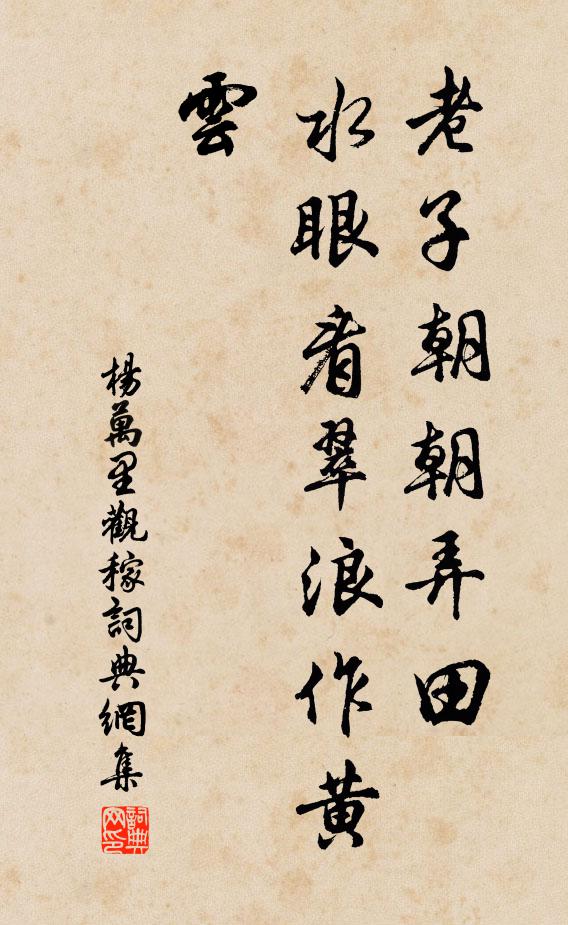 老子朝朝弄田
水眼看翠浪作黃
雲
楊萬里觀稼詞典網集
詞典
网印